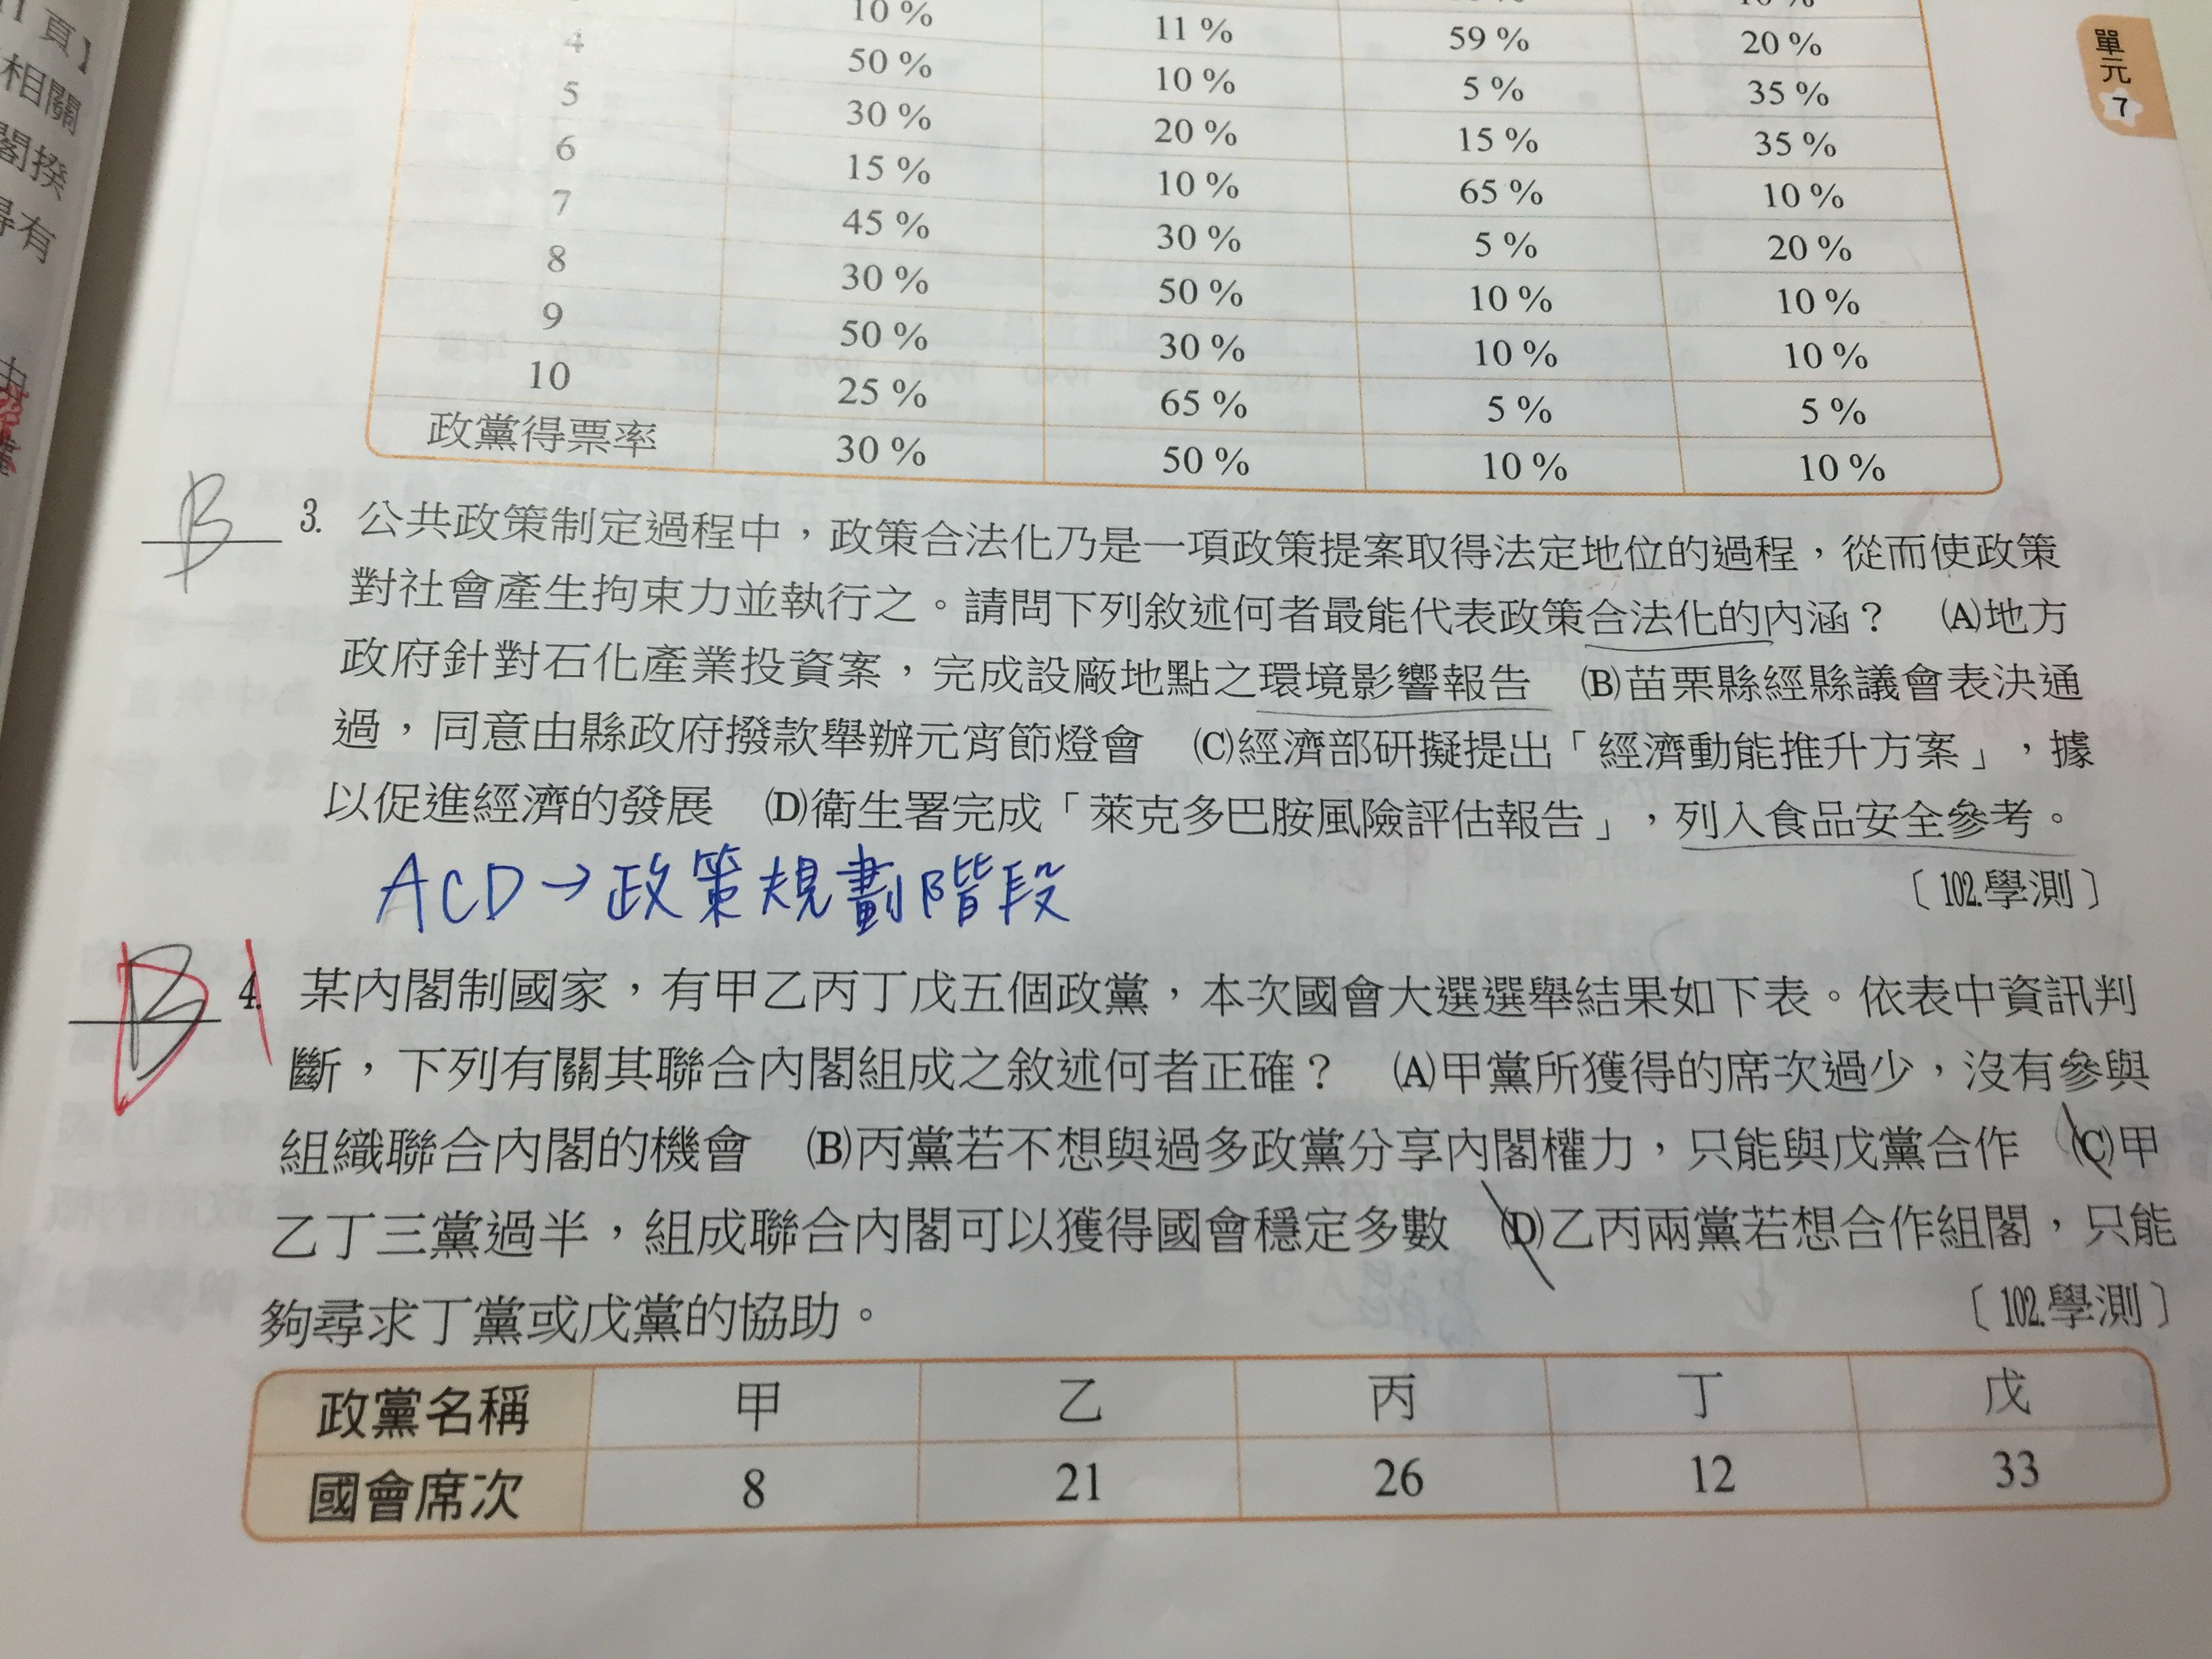 頁】
相關
閣揆
得有
單元
7
10 % 11 % 59 % 20 %
4 50 % 10 % 5 % 35 %
5 30 % 20 % 15 % 35 %
6 15 % 10 % 65 % 10 %
7 45 % 30 % 5 % 20 %
8 30 % 50 % 10 % 10 %
9 50 % 30 % 10 % 10 %
10 25 % 65 % 5 % 5 %
政黨得票率 30 % 50 % 10 % 10 %
B 3. 公共政策制定過程中，政策合法化乃是一項政策提案取得法定地位的過程，從而使政策
對社會產生拘束力並執行之。請問下列敘述何者最能代表政策合法化的內涵？ (A)地方
政府針對石化產業投資案，完成設廠地點之環境影響報告 (B)苗栗縣經縣議會表決通
過，同意由縣政府撥款舉辦元宵節燈會 (C)經濟部研擬提出「經濟動能推升方案」，據
以促進經濟的發展 (D)衛生署完成「萊克多巴胺風險評估報告」，列入食品安全參考。
〔102.學測〕
ACD→政策規劃階段
B D 4. 某內閣制國家，有甲乙丙丁戊五個政黨，本次國會大選選舉結果如下表。依表中資訊判
斷，下列有關其聯合內閣組成之敘述何者正確？ (A)甲黨所獲得的席次過少，沒有參與
組織聯合內閣的機會 (B)丙黨若不想與過多政黨分享內閣權力，只能與戊黨合作 (C)甲
乙丁三黨過半，組成聯合內閣可以獲得國會穩定多數 (D)乙丙兩黨若想合作組閣，只能
夠尋求丁黨或戊黨的協助。
〔102.學測〕
政黨名稱 甲 乙 丙 丁 戊
國會席次 8 21 26 12 33